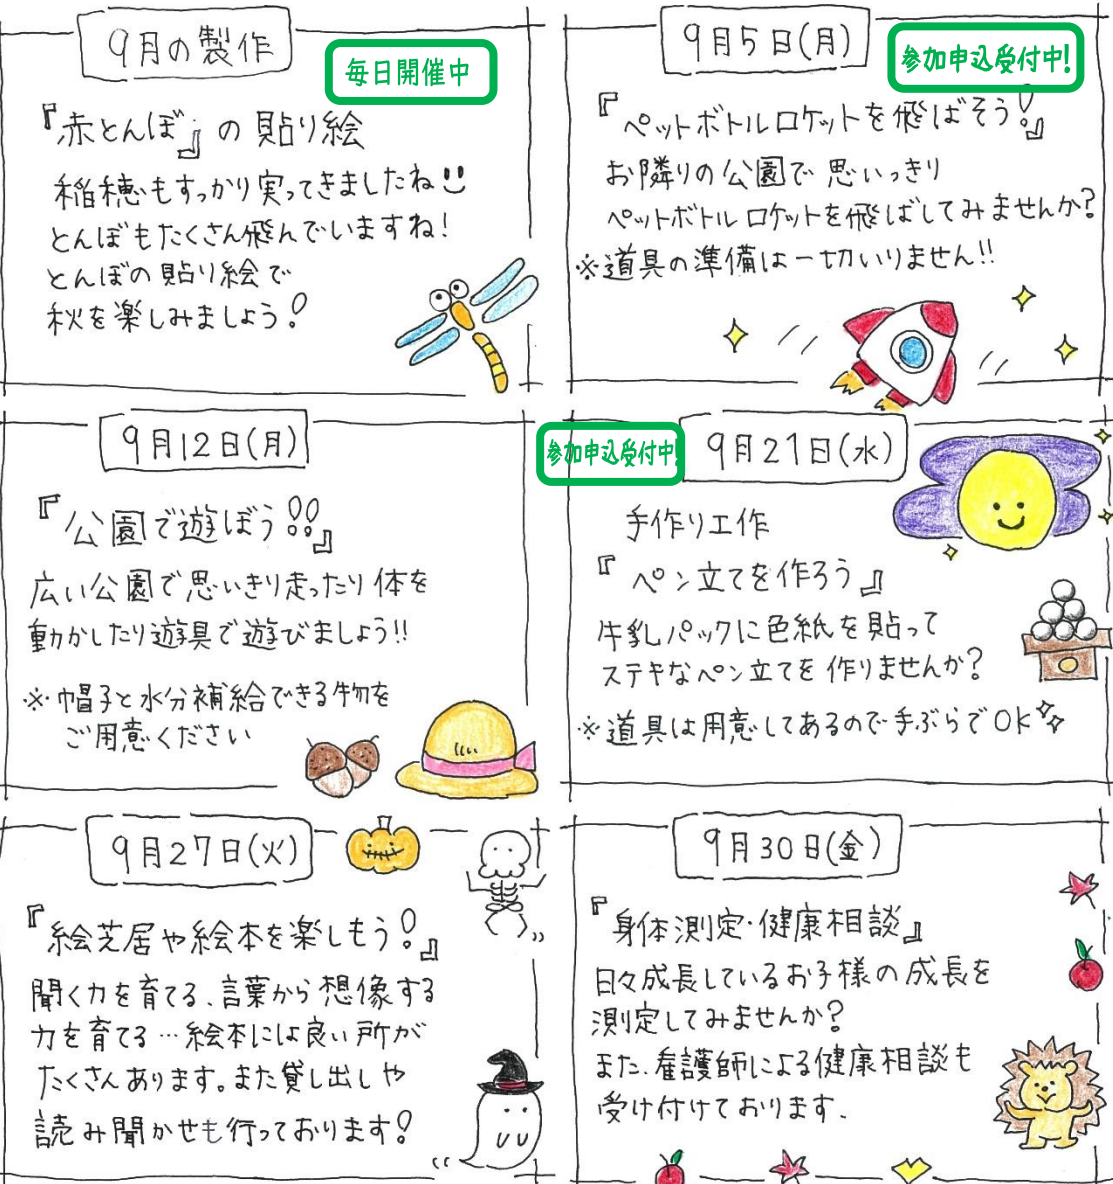 9月の製作
毎日開催中
『赤とんぼ』の貼り絵
稲穂もすっかり実ってきましたね
とんぼもたくさん飛んでいますね!
とんぼの貼り絵で
秋を楽しみましょう!
9月5日(月)
参加申込受付中!
『ペットボトルロケットを飛ばそう!』
お隣りの公園で思いっきり
ペットボトルロケットを飛ばしてみませんか?
※道具の準備は一切いりません!!
9月12日(月)
『公園で遊ぼう!!』
広い公園で思いきり走ったり体を
動かしたり遊具で遊びましょう!!
※帽子と水分補給できる物を
ご用意ください
参加申込受付中!
9月21日(水)
手作り工作
『ペン立てを作ろう』
牛乳パックに色紙を貼って
ステキなペン立てを作りませんか?
※道具は用意してあるので手ぶらでOK
9月27日(火)
『絵芝居や絵本を楽しもう!』
聞く力を育てる、言葉から想像する
力を育てる…絵本には良い所が
たくさんあります。また貸し出しや
読み聞かせも行っております!
9月30日(金)
『身体測定・健康相談』
日々成長しているお子様の成長を
測定してみませんか?
また、看護師による健康相談も
受け付けております.